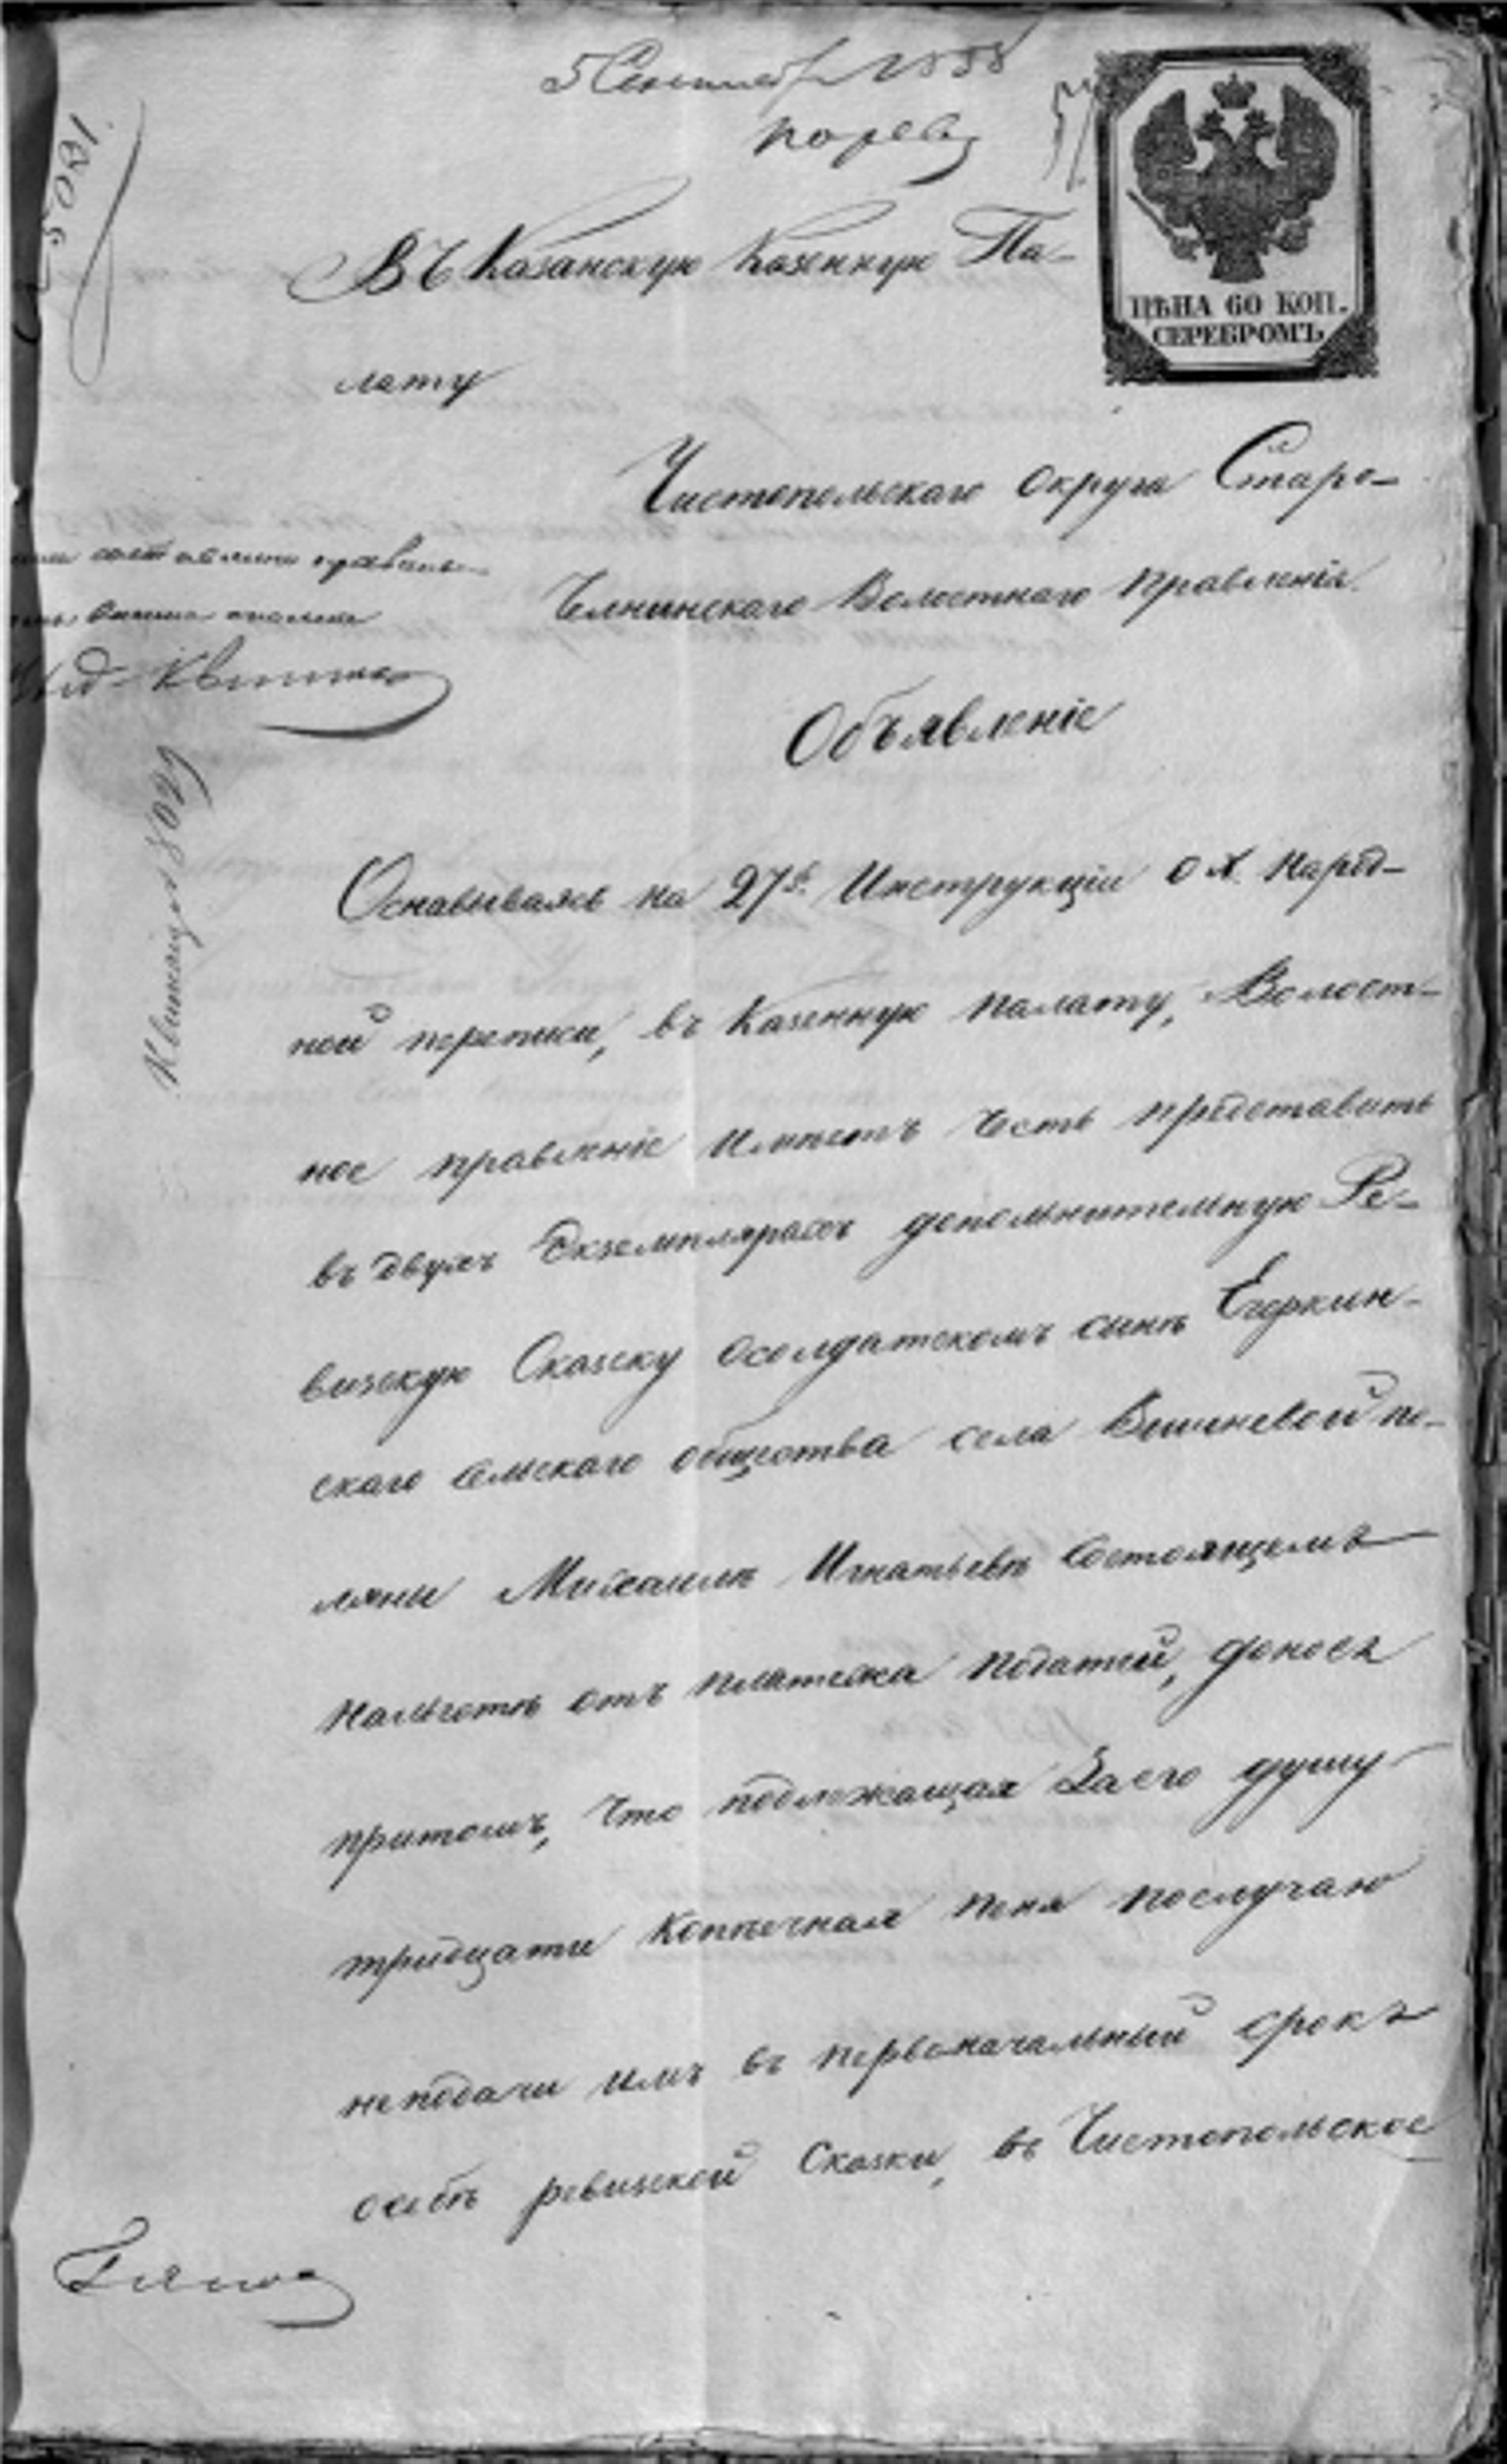 5 Сентября 1858
по рев
ЦѢНА 60 КОП.
СЕРЕБРОМЪ
Въ Казанскую Казенную Па-
лату
Чистопольскаго Округа Старо-
Челнинскаго Волостнаго Правленія
Объявленіе
Основываясь на 27 § Инструкціи о X Народ-
ной переписи, въ Казенную Палату, Волост-
ное правленіе имѣетъ честь представить
въ двухъ Экземплярахъ дополнительную Ре-
визскую Сказку осолдатскомъ сынѣ Егоркин-
скаго сельскаго общества села Вишневой по-
ляны Михаилѣ Игнатьевѣ Состоящемъ
нальготѣ отъ платежа податей, донося
притомъ, что подлежащая Заего душу
тридцати Копѣечная пеня послучаю
неподачи имъ въ первоначальный срокъ
осебѣ ревизской Сказки, въ Чистопольское
Квитанція 8029